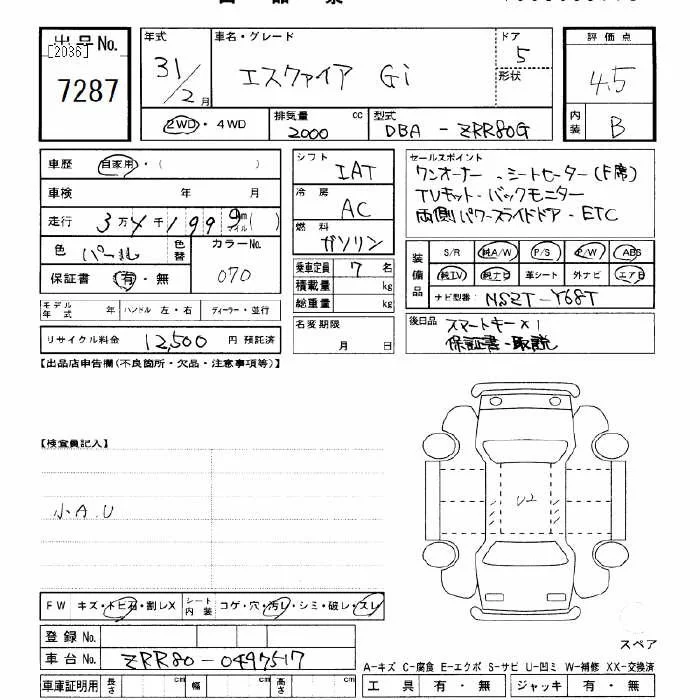 出品票
出品No.
[2036]
7287
年式 31/2月
車名・グレード エスクァイア Gi
ドア 5
形状
評価点 4.5
内装 B
2WD・4WD
排気量 2000 cc
型式 DBA - ZRR80G
車歴 自家用・( )
車検 年 月
走行 3万4千1999 km マイル ( )
色 パール 色替
カラーNo. 070
保証書 有・無
モデル年式 年 ハンドル 左・右 ディーラー・並行
リサイクル料金 12,500 円 預託済
シフト IAT
冷房 AC
燃料 ガソリン
乗車定員 7 名
積載量 kg
総重量 kg
名変期限
月 日
セールスポイント
ワンオーナー、シートヒーター(F席)
TVキット・バックモニター
両側パワースライドドア・ETC
装備品
S/R 純A/W P/S P/W ABS
純TV 純ナビ 革シート 外ナビ エアB
ナビ型番: NSZT-Y68T
後日品 スマートキー×1
保証書・取説
【出品店申告欄(不良箇所・欠品・注意事項等)】
【検査員記入】
U2
小A.U
FW キズ・トビ石・割レX
シート内装 コゲ・穴・汚レ・シミ・破レ・スレ
登録No.
車台No. ZRR80-0497517
車庫証明用 長さ cm 幅 cm 高さ cm
スペア
A-キズ C-腐食 E-エクボ S-サビ U-凹ミ W-補修 XX-交換済
工具 有・無 ジャッキ 有・無